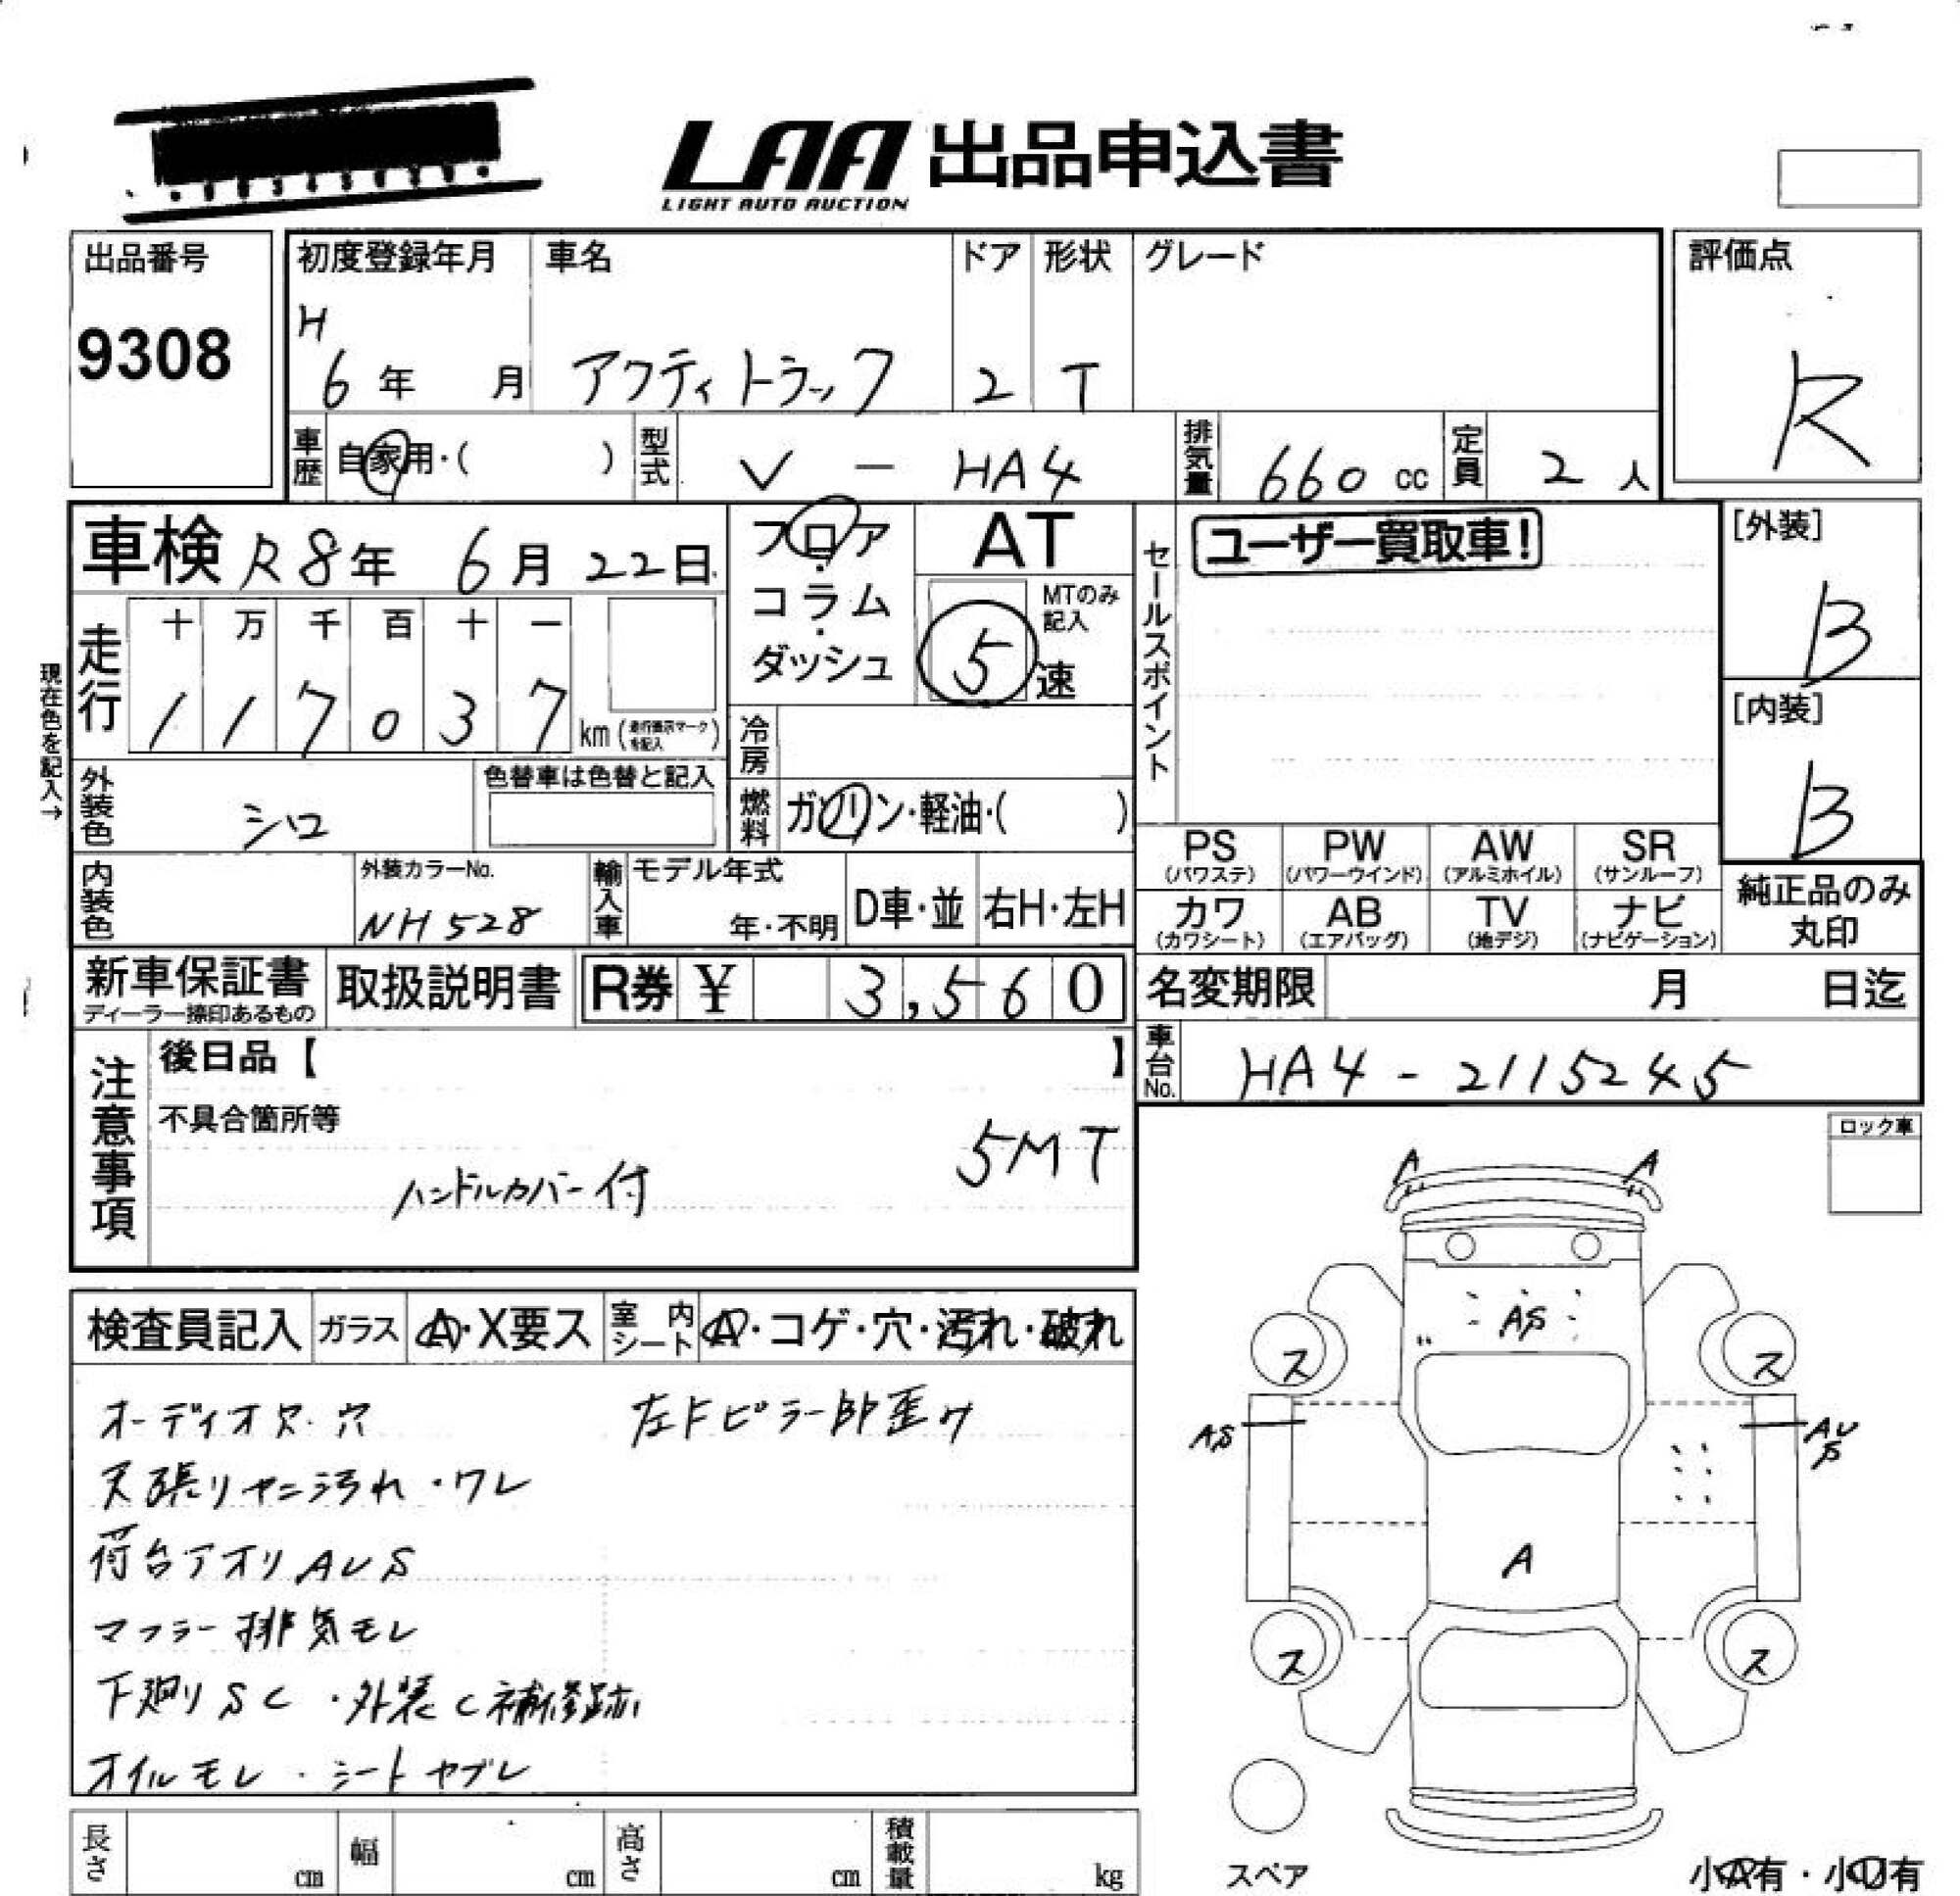 LAA 出品申込書
LIGHT AUTO AUCTION
出品番号
9308
初度登録年月
H
6年 月
車名
アクティトラック
ドア
2
形状
T
グレード
評価点
R
車歴
自家用・( )
型式
V - HA4
排気量
660 cc
定員
2 人
車検 R8年 6月 22日
フロア・コラム・ダッシュ
AT
MTのみ記入
5 速
セールスポイント
ユーザー買取車!
[外装]
B
[内装]
B
現在色を記入→
走行
十 万 千 百 十 一
1 1 7 0 3 7 km (走行表示マークを記入)
冷房
外装色
シロ
色替車は色替と記入
燃料
ガソリン・軽油・( )
内装色
外装カラーNo.
NH528
輸入車
モデル年式
年・不明
D車・並
右H・左H
PS (パワステ)
PW (パワーウインド)
AW (アルミホイル)
SR (サンルーフ)
カワ (カワシート)
AB (エアバッグ)
TV (地デジ)
ナビ (ナビゲーション)
純正品のみ丸印
新車保証書
ディーラー捺印あるもの
取扱説明書
R券 ¥ 3,560
名変期限 月 日迄
車台No.
HA4-2115245
注意事項
後日品【 】
不具合箇所等
ハンドルカバー付
5MT
ロック車
検査員記入
ガラス
A・X要ス
室内シート
A・コゲ・穴・汚れ・破れ
オーディオ欠・穴
左Fピラー部歪ミ
天張りヤニ汚れ・ワレ
荷台アオリAUS
マフラー排気モレ
下廻りSC・外装C補修跡
オイルモレ・シートヤブレ
A
A
AS
ス
ス
AS
AUS
A
ス
ス
スペア
長さ cm
幅 cm
高さ cm
積載量 kg
小A有・小U有